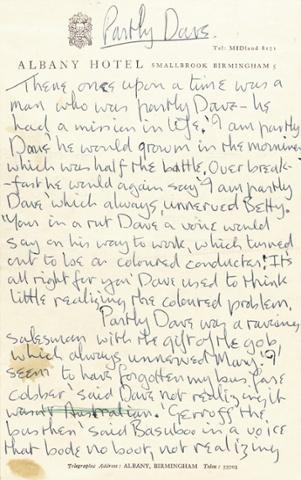 Partly Dave.
Tel: MIDland 8171
ALBANY HOTEL SMALLBROOK BIRMINGHAM 5
There once upon a time was a
man who was partly Dave – he
had a mission in life. 'I am partly
Dave' he would growm in the morning
which was half the battle. Over break-
-fast he would again say 'I am partly
Dave' which always unnerved Betty.
'Your in a rut Dave' a voice would
say on his way to work, which turned
out to be a coloured conductor. 'It's
all right for you' Dave used to think
little realizing the coloured problem.
Partly Dave was a raving
salesman with the gift of the gob,
which always unnerved Mary. 'I
seem to have forgotten my bus fare
cobber,' said Dave not realizing it
Australian. 'Gerroff the
bus then' said Basuboo in a voice
that bode no boot, not realizing
Telegraphic Address: ALBANY, BIRMINGHAM Telex: